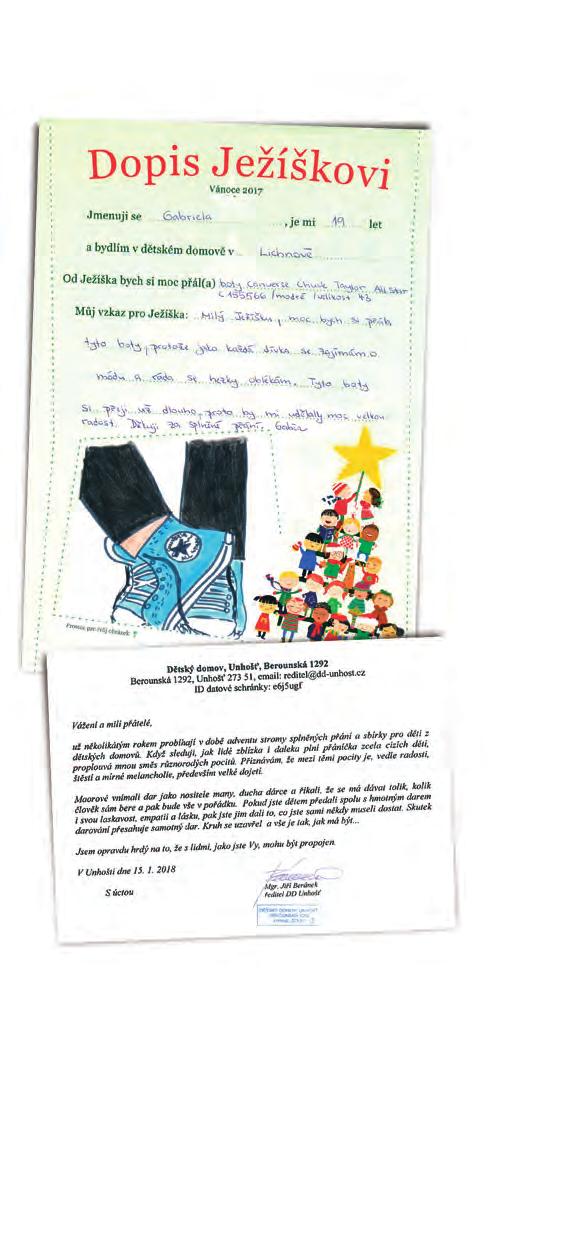 Dopis Ježíškovi
Vánoce 2017
Jmenuji se Gabriela , je mi 19 let
a bydlím v dětském domově v Lichnově
Od Ježíška bych si moc přál(a) boty Converse Chuck Taylor All Star
C 155566 /modré /velikost 43
Můj vzkaz pro Ježíška: Milý Ježíšku, moc bych si přála
tyto boty, protože jako každá dívka se zajímám o
módu a ráda se hezky oblékám. Tyto boty
si přeji už dlouho, proto by mi udělaly moc velkou
radost. Děkuji za splnění přání. Gabča
Prostor pro tvůj obrázek
Dětský domov, Unhošť, Berounská 1292
Berounská 1292, Unhošť 273 51, email: reditel@dd-unhost.cz
ID datové schránky: e6j5ugf
Vážení a milí přátelé,
už několikátým rokem probíhají v době adventu stromy splněných přání a sbírky pro děti z
dětských domovů. Když sleduji, jak lidé zblízka i daleka plní přáníčka zcela cizích dětí,
proplouvá mnou směs různorodých pocitů. Přiznávám, že mezi těmi pocity je, vedle radosti,
štěstí a mírné melancholie, především velké dojetí.
Maorové vnímali dar jako nositele many, ducha dárce a říkali, že se má dávat tolik, kolik
člověk sám bere a pak bude vše v pořádku. Pokud jste dětem předali spolu s hmotným darem
i svou laskavost, empatii a lásku, pak jste jim dali to, co jste sami někdy museli dostat. Skutek
darování přesahuje samotný dar. Kruh se uzavřel a vše je tak, jak má být...
Jsem opravdu hrdý na to, že s lidmi, jako jste Vy, mohu být propojen.
V Unhošti dne 15. 1. 2018
S úctou
Mgr. Jiří Beránek
ředitel DD Unhošť
DĚTSKÝ DOMOV UNHOŠŤ
BEROUNSKÁ 1292